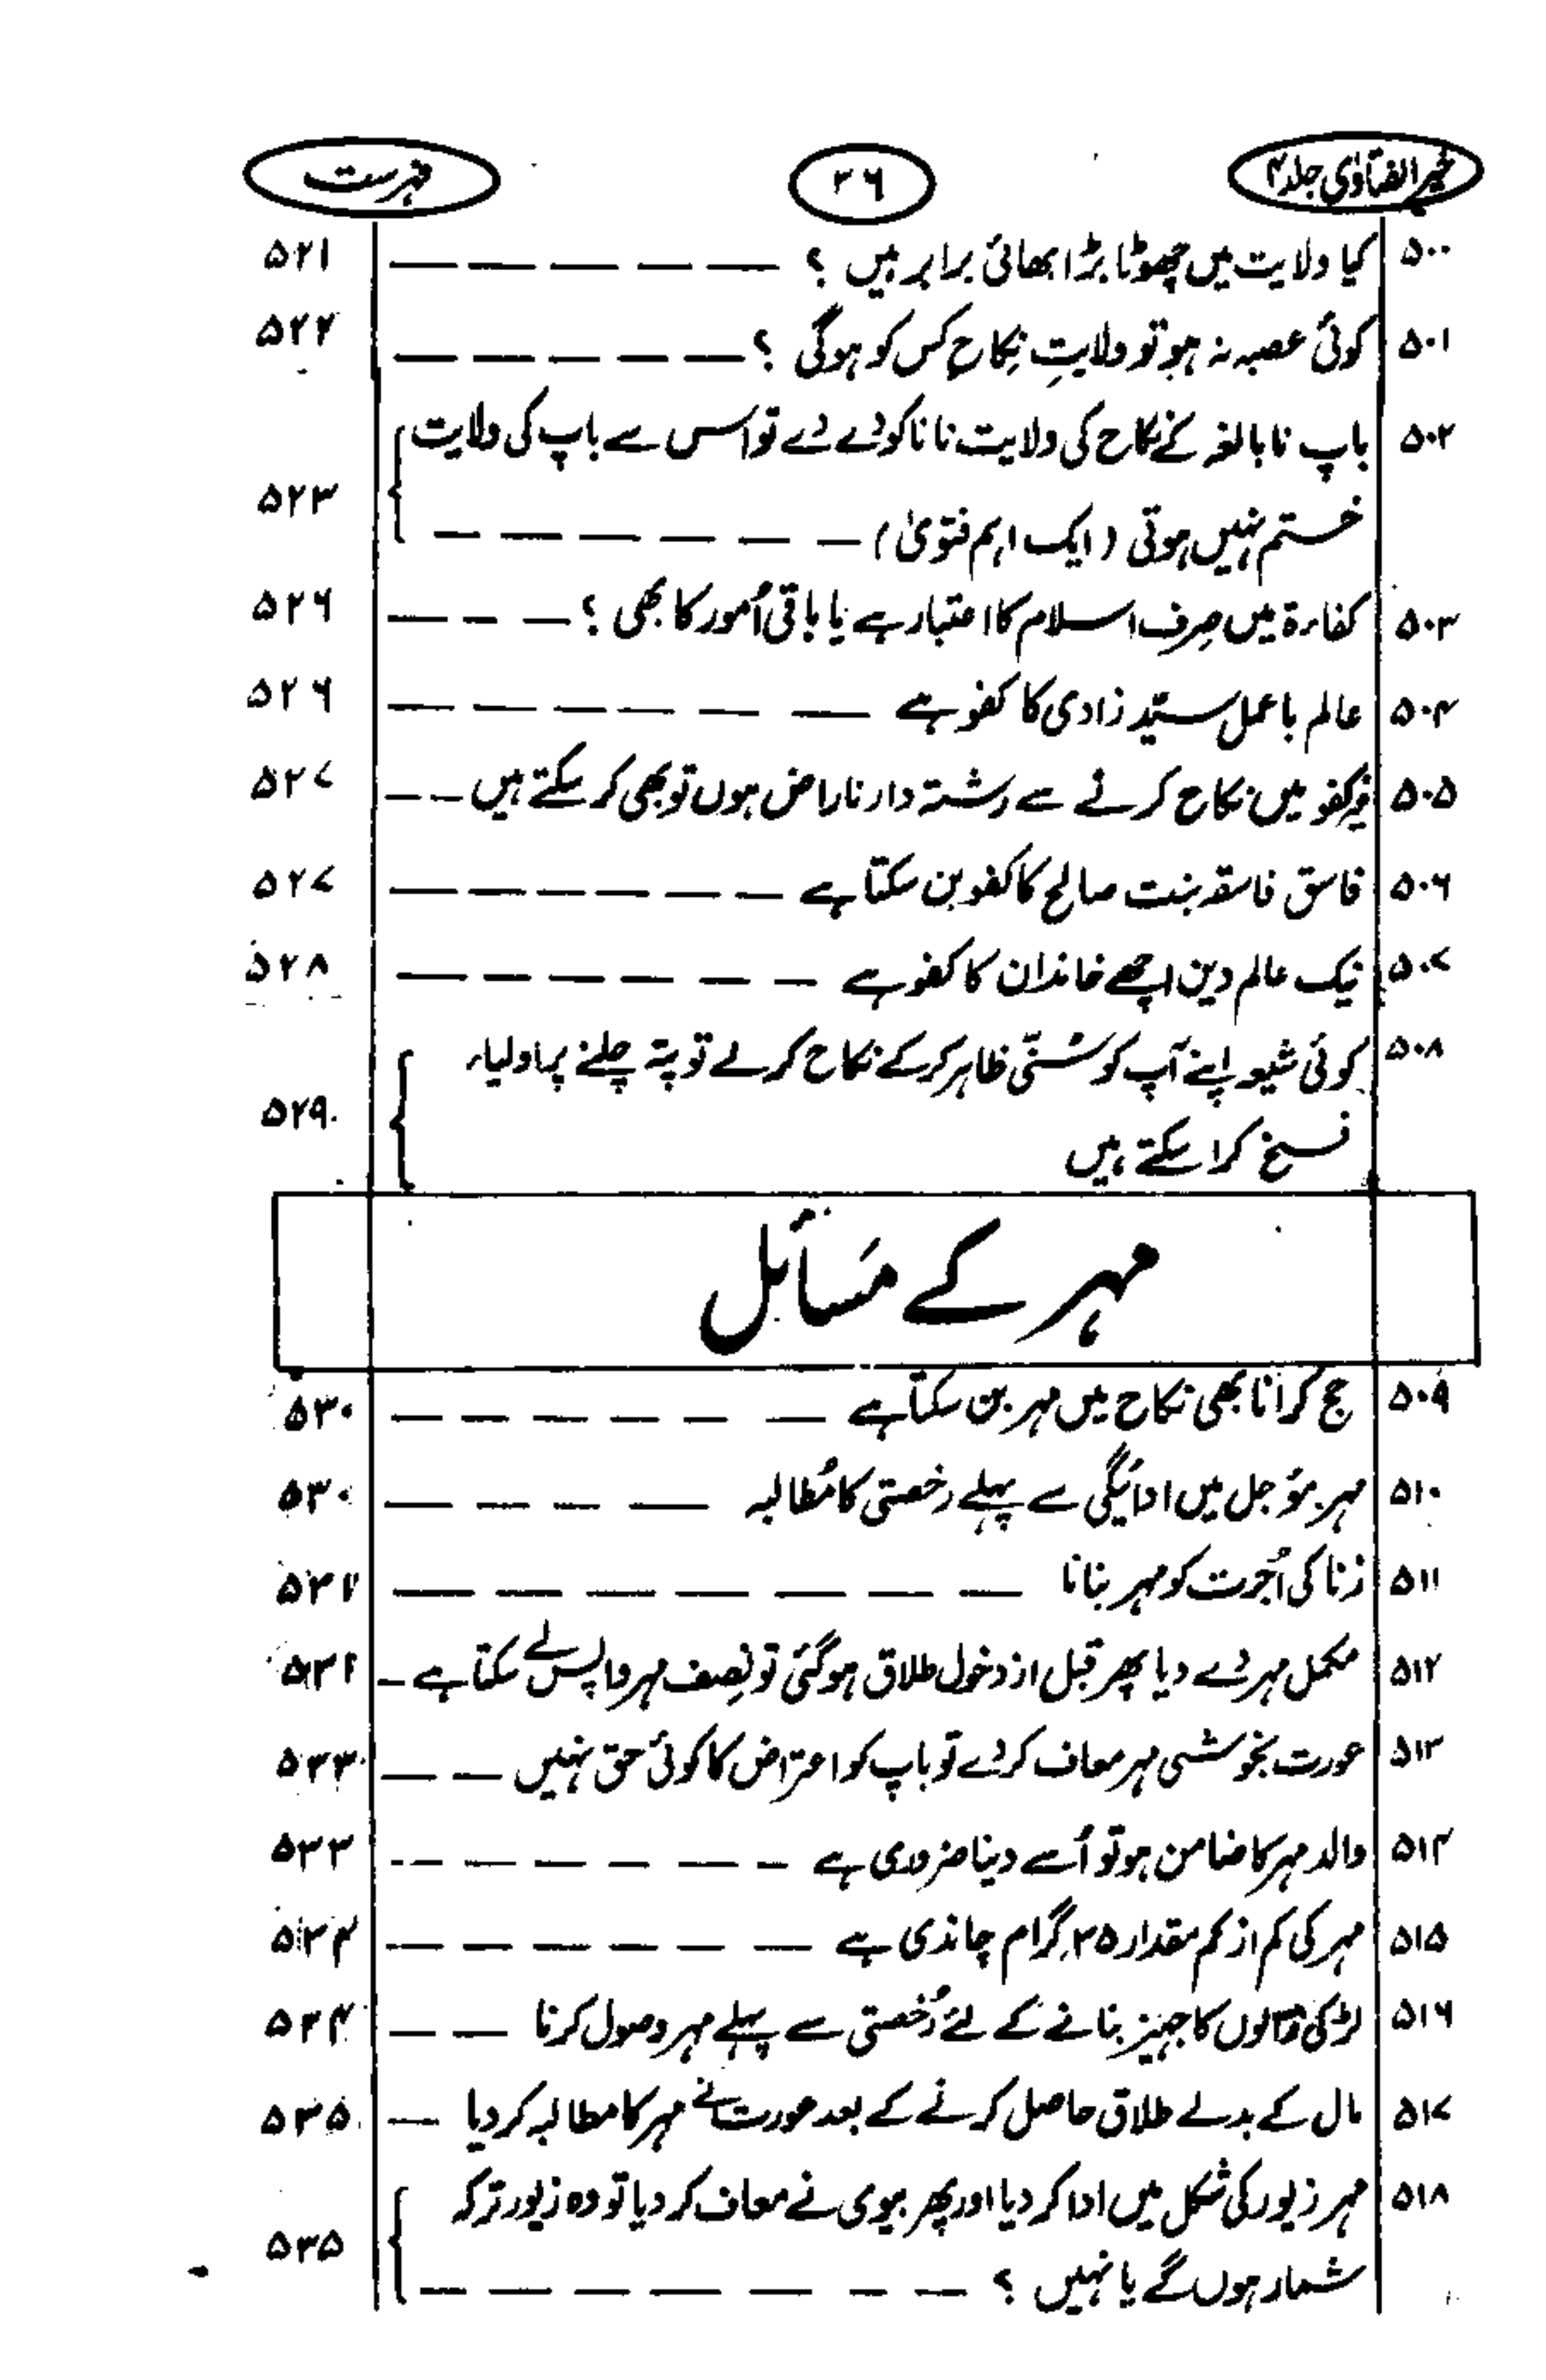 خیر الفتاوٰی جلد ۴ ۳۶ فہرست
۵۰۰ کیا ولایت میں چھوٹا بڑا بھائی برابر ہیں ؟ ۵۲۱
۵۰۱ کوئی عصبہ نہ ہو تو ولایتِ نکاح کس کو ہوگی ؟ ۵۲۲
۵۰۲ باپ نابالغہ کے نکاح کی ولایت نانا کو دے دے تو اس سے باپ کی ولایت
ختم نہیں ہوتی (ایک اہم فتویٰ) ۵۲۳
۵۰۳ کفارۃ میں صِرف اسلام کا اعتبار ہے یا باقی اُمور کا بھی ؟ ۵۲۶
۵۰۴ عالم باعمل سیّد زادی کا کفو ہے ۵۲۶
۵۰۵ غیر کفو میں نکاح کرنے سے رشتہ دار ناراض ہوں تو بھی کر سکتے ہیں ۵۲۷
۵۰۶ فاسق فاسقہ بنت صالح کا کفو بن سکتا ہے ۵۲۷
۵۰۷ نیک عالم دین اچھے خاندان کا کفو ہے ۵۲۸
۵۰۸ کوئی شیعہ اپنے آپ کو سُنّی ظاہر کرکے نکاح کرلے تو پتہ چلنے پر اولیاء
فسخ کرا سکتے ہیں ۵۲۹
مہر کے مَسَائل
۵۰۹ حج کرانا بھی نکاح میں مہر بن سکتا ہے ۵۳۰
۵۱۰ مہر مؤجل میں ادائیگی سے پہلے رخصتی کا مُطالبہ ۵۳۰
۵۱۱ زنا کی اُجرت کو مہر بنانا ۵۳۱
۵۱۲ مکمل مہر دے دیا پھر قبل از دخول طلاق ہوگئی تو نِصف مہر واپس لے سکتا ہے ۵۳۲
۵۱۳ عورت بخوشی مہر معاف کردے تو باپ کو اعتراض کا کوئی حق نہیں ۵۳۳
۵۱۴ والد مہر کا ضامن ہو تو اُسے دینا ضروری ہے ۵۳۳
۵۱۵ مہر کی کم از کم مقدار ۳۵ گرام چاندی ہے ۵۳۴
۵۱۶ لڑکی والوں کا جہیز بنانے کے لئے رُخصتی سے پہلے مہر وصول کرنا ۵۳۴
۵۱۷ مال کے بدلے طلاق حاصل کرنے کے بعد عورت نے مہر کا مطالبہ کر دیا ۵۳۵
۵۱۸ مہر زیور کی شکل میں ادا کر دیا اور پھر بیوی نے معاف کر دیا تو وہ زیور ترکہ
شمار ہوں گے یا نہیں ؟ ۵۳۵